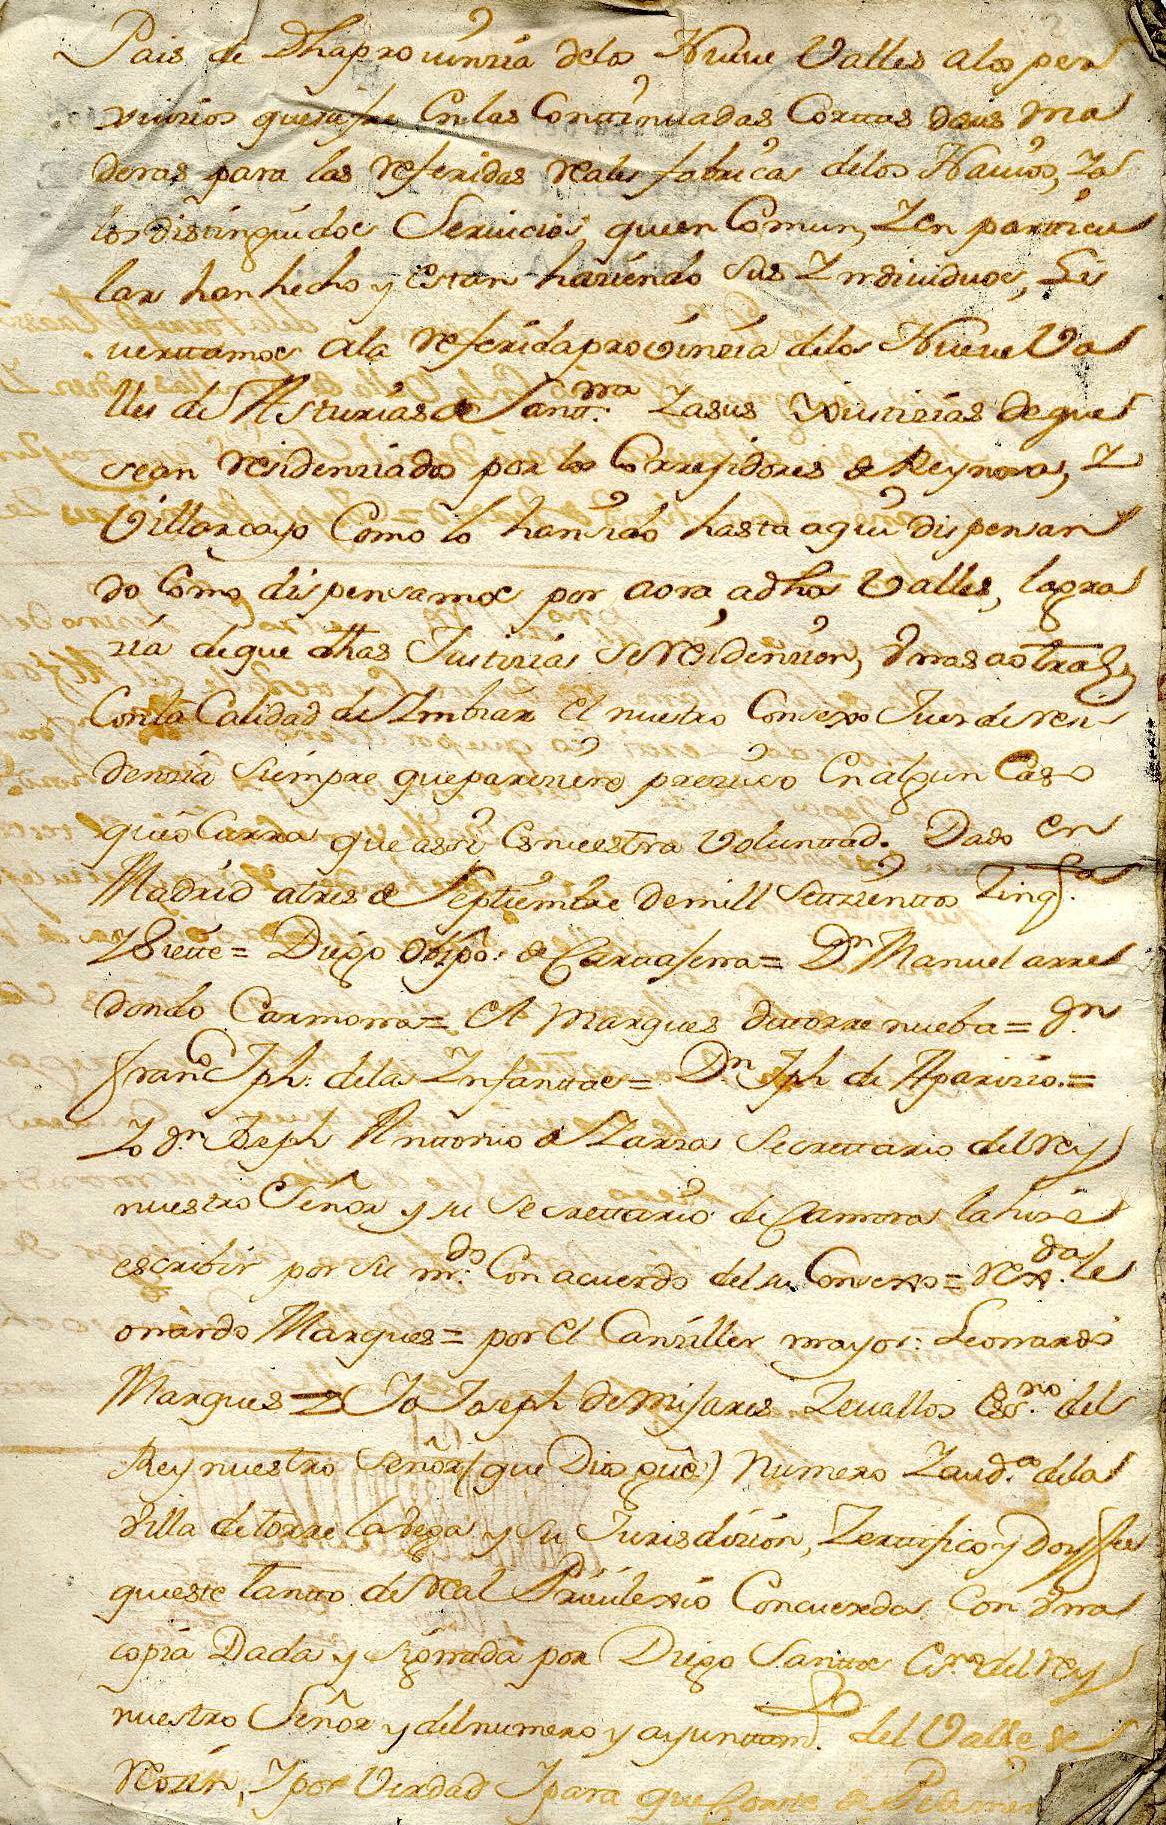 Pais de Dhaprouinzia delos Nueue Valles alos per
xuicios que sufre En las Conttinuadas Corttas de sus ma
deras para las referidas reales fabricas delos Nauios, Ya
los distinguidos Seruicios que en Comun, Y en particu
lar han hecho y estan haziendo sus Yndiuiduos, Li
uerttamos ala referida prouinzia delos Nueue Va
lles de Asturias de Santt.na Y a sus Justizias de que
sean residenziados por los Corregidores de Reynosa, Y
Villarcayo Como lo han sido hasta aqui dispensan
do Como dispensamos por aora, adhos Valles, la gra
zia de que dhas Justizias se residenzien, Vnas a otras
Con la Calidad de Ymbiar el nuestro Consexo Juez de resi
denzia siempre que pareziere preziso En algun Caso
que oCurra que assi es nuestra Voluntad. Dado en
Madrid a tres de Septiembre de mill Settezientos Zinq.ta
y Siette = Diego Obispo de Cartaxena = D.n Manuel arre
dondo Carmona = El Marques de torre nueba = D.n
fran.co Jph. delas Ynfanttas = D.n Jph de Aparizio. =
Yo d.n Joseph Anttonio de Yarza Secrettario del rey
nuestro Señor y su Secrettario de Camara la hize
escribir por su m.do Con acuerdo del su Consexo = rex.da le
onardo Marques = por el Canziller mayor: Leonardo
Marques = Yo Joseph de Mijares Zeuallos Es.no del
Rey nuestro Señor (que Dios gue) Numero Y aud.a dela
Villa de torre la Vega y su Jurisdizion, Zerttifico y Doy fee
que este tantto de Real Priuilexio Concuerda Con Vna
copia Dada y signada por Diego Santtos Es.no del rey
nuestro Señor y del numero y ayunttam.to del Valle de
Rozin, Y por Verdad Y para que Conste de Pedimen